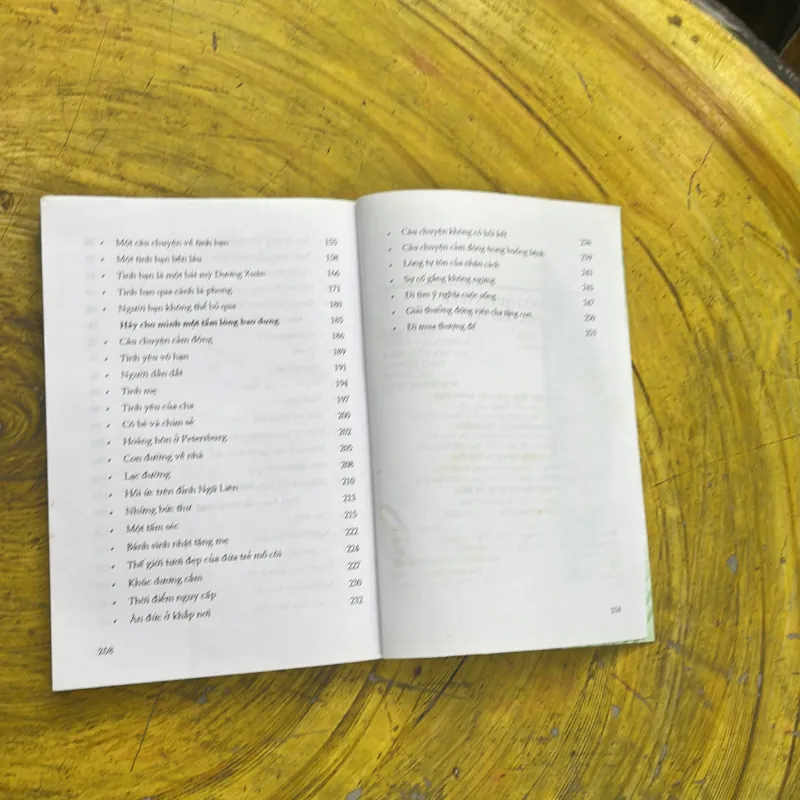 Một câu chuyện về tình bạn 155
Một tình bạn bền lâu 158
Tình bạn là một bát mỳ Dương Xuân 166
Tình bạn qua cánh lá phong 171
Người bạn không thể bỏ qua 180
Hãy cho mình một tấm lòng bao dung 185
Câu chuyện cảm động 186
Tình yêu vô hạn 189
Người dẫn dắt 191
Tình mẹ 194
Tình yêu của cha 197
Cô bé và chim sẻ 200
Hoàng hôn ở Petersburg 202
Con đường về nhà 205
Lạc đường 208
Hồi ức trên đỉnh Ngũ Liên 210
Những bức thư 213
Một tấm séc 215
Bánh sinh nhật tặng mẹ 222
Thế giới tươi đẹp của đứa trẻ mồ côi 224
Khúc dương cầm 227
Thời điểm nguy cấp 230
Ân đức ở khắp nơi 232
258
Câu chuyện không có hồi kết 236
Câu chuyện cảm động trong buồng bệnh 239
Lòng tự tôn của nhân cách 243
Sự cố gắng không ngừng 245
Đi tìm ý nghĩa cuộc sống 247
Giải thưởng động viên cha tặng con 250
Đi mua thượng đế 255